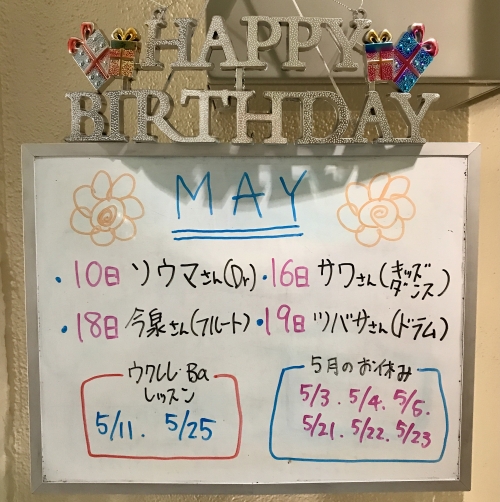 HAPPY
BIRTHDAY
MAY
・10日 ソウマさん(Dr)・16日 サワさん(キッズダンス)
・18日 今泉さん(フルート)・19日 ツバサさん(ドラム)
ウクレレ・Ba
レッスン
5/11. 5/25
5月のお休み
5/3. 5/4. 5/5.
5/21. 5/22. 5/23